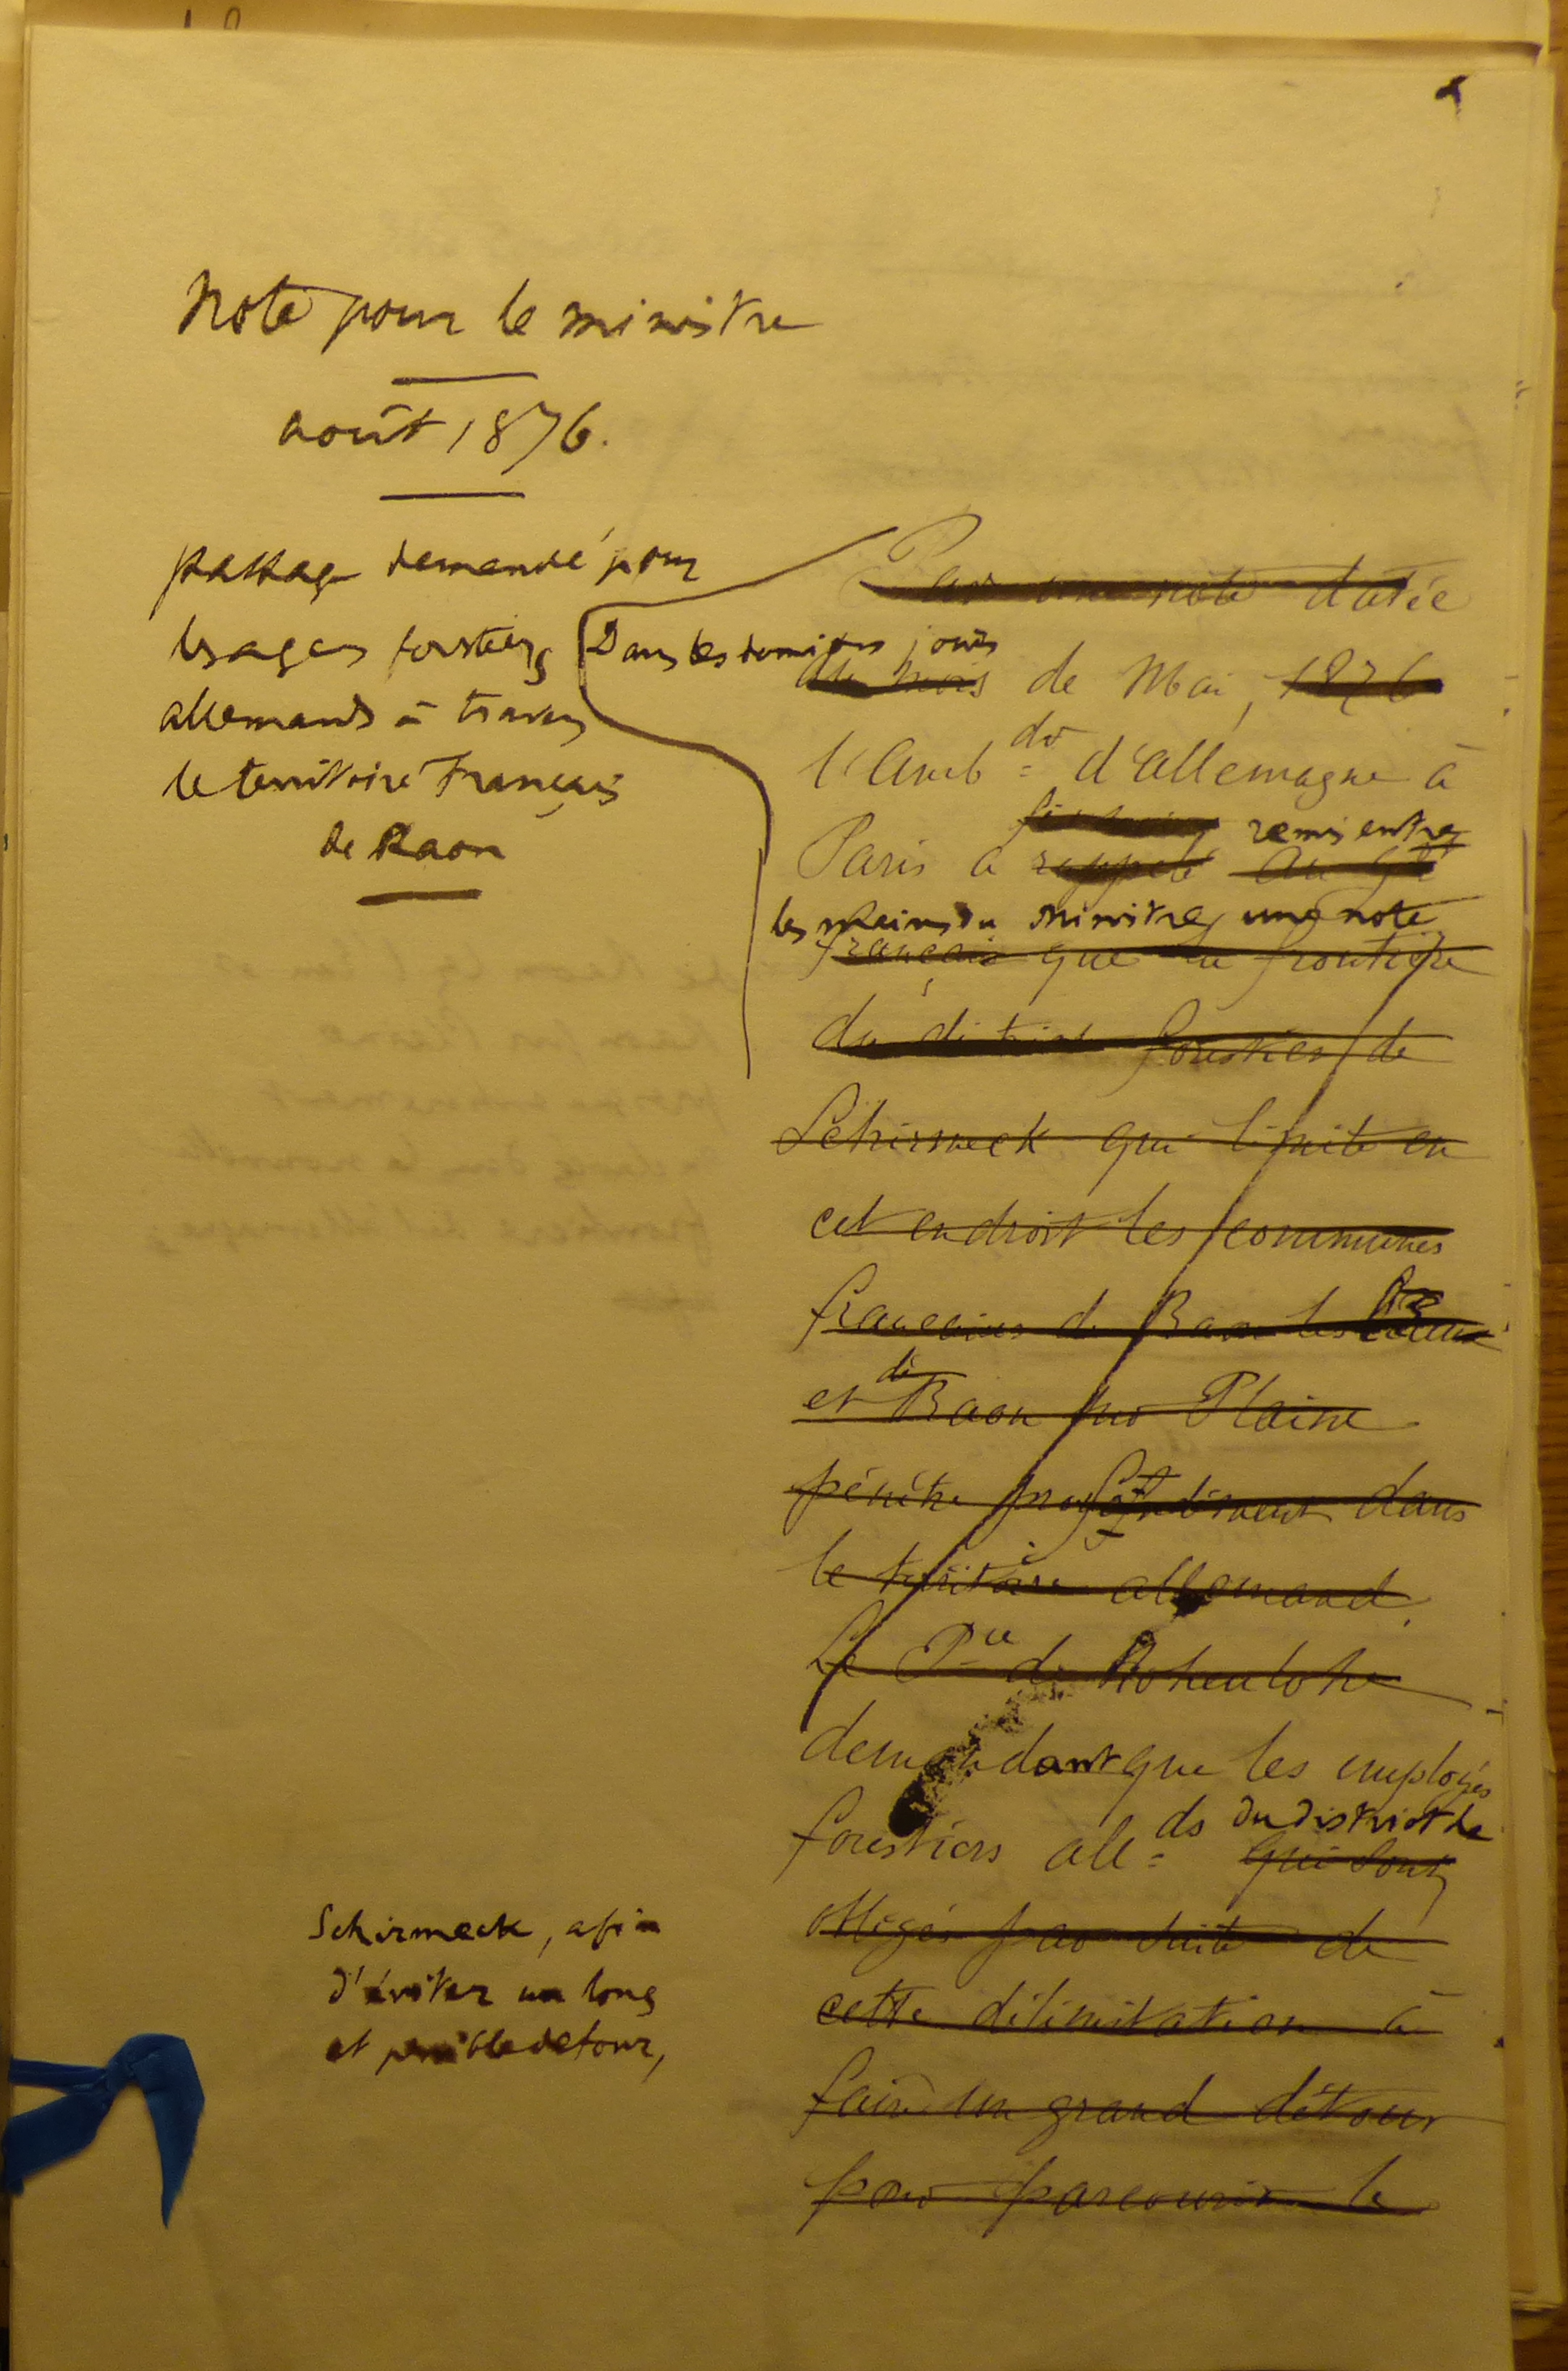 Note pour le ministre
août 1876.
passage demandé pour
les agens forestiers
allemands à travers
le territoire Français
de Raon
Par une note datée
Dans les derniers jours
du mois de Mai, 1876
l'Amb dr d'Allemagne à
remis entre
Paris a rappelé au Gt
les mains du ministre, une note
français que la frontière
du district forestier de
Schirmeck qui limite en
cet endroit les communes
françaises de Raon les
et de Raon sur Plaine
pénètre profondément dans
le territoire allemand.
Le Pce de Hohenlohe
demandant que les employés
forestiers all ds du district de
qui sont
Schirmeck, afin
d'éviter un long
et penible detour,
obligés par suite de
cette délimitation à
faire un grand détour
pour parcourir le